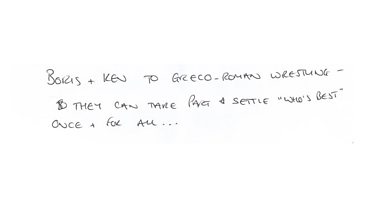 BORIS + KEN TO GRECO-ROMAN WRESTLING -
THEY CAN TAKE PART & SETTLE "WHO'S BEST"
ONCE + FOR ALL...